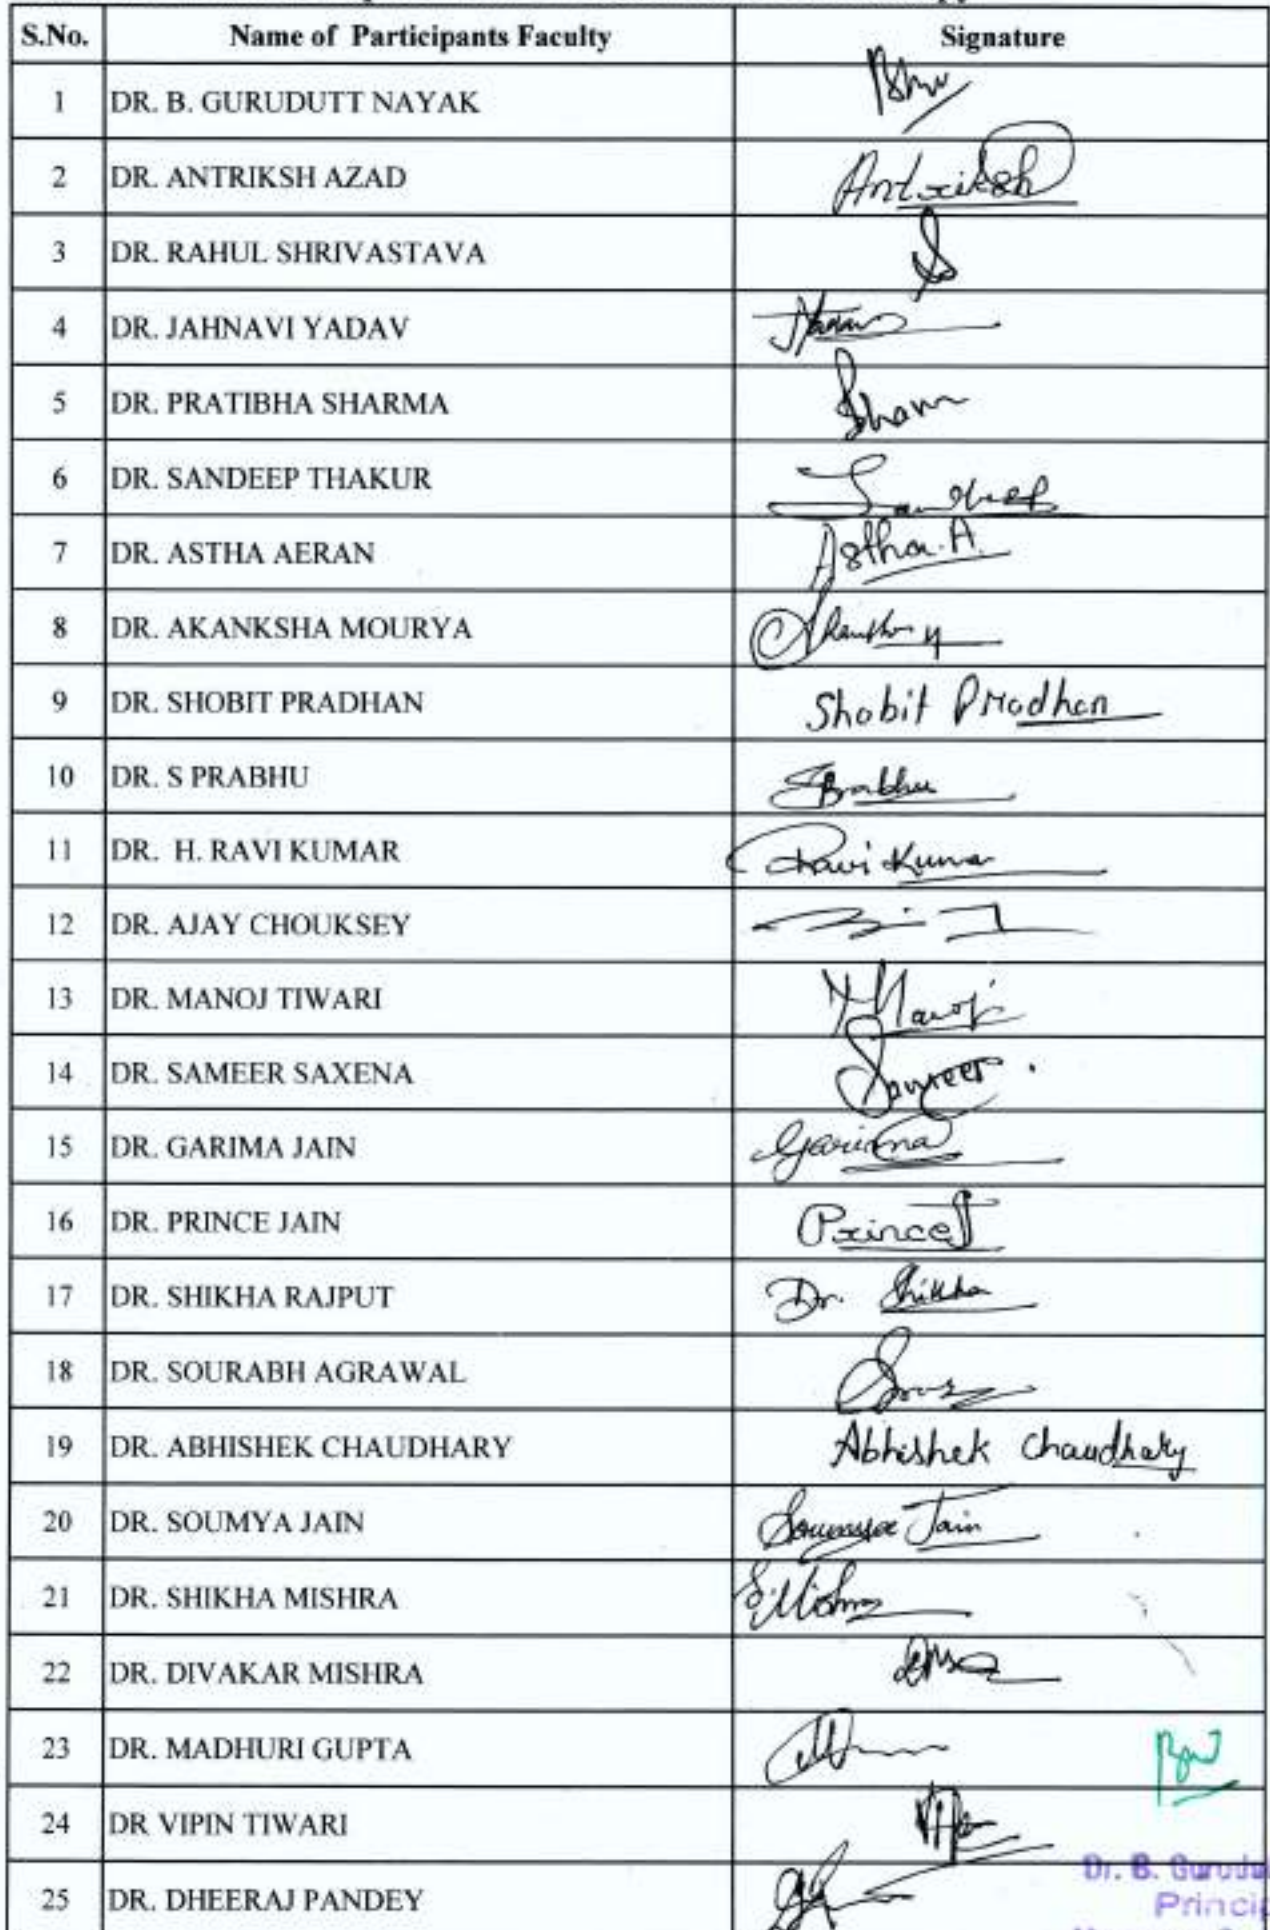 S.No. Name of Participants Faculty Signature
1 DR. B. GURUDUTT NAYAK
2 DR. ANTRIKSH AZAD Antriksh
3 DR. RAHUL SHRIVASTAVA
4 DR. JAHNAVI YADAV
5 DR. PRATIBHA SHARMA
6 DR. SANDEEP THAKUR Sandeep
7 DR. ASTHA AERAN Astha.A.
8 DR. AKANKSHA MOURYA
9 DR. SHOBIT PRADHAN Shobit Pradhan
10 DR. S PRABHU SPrabhu
11 DR. H. RAVI KUMAR Ravi Kumar
12 DR. AJAY CHOUKSEY
13 DR. MANOJ TIWARI Manoj
14 DR. SAMEER SAXENA Sameer
15 DR. GARIMA JAIN Garima
16 DR. PRINCE JAIN PrinceJ
17 DR. SHIKHA RAJPUT Dr. Shikha
18 DR. SOURABH AGRAWAL
19 DR. ABHISHEK CHAUDHARY Abhishek Chaudhary
20 DR. SOUMYA JAIN Soumya Jain
21 DR. SHIKHA MISHRA S.Mishra
22 DR. DIVAKAR MISHRA
23 DR. MADHURI GUPTA
24 DR VIPIN TIWARI
25 DR. DHEERAJ PANDEY
Dr. B. Gurudu
Princip